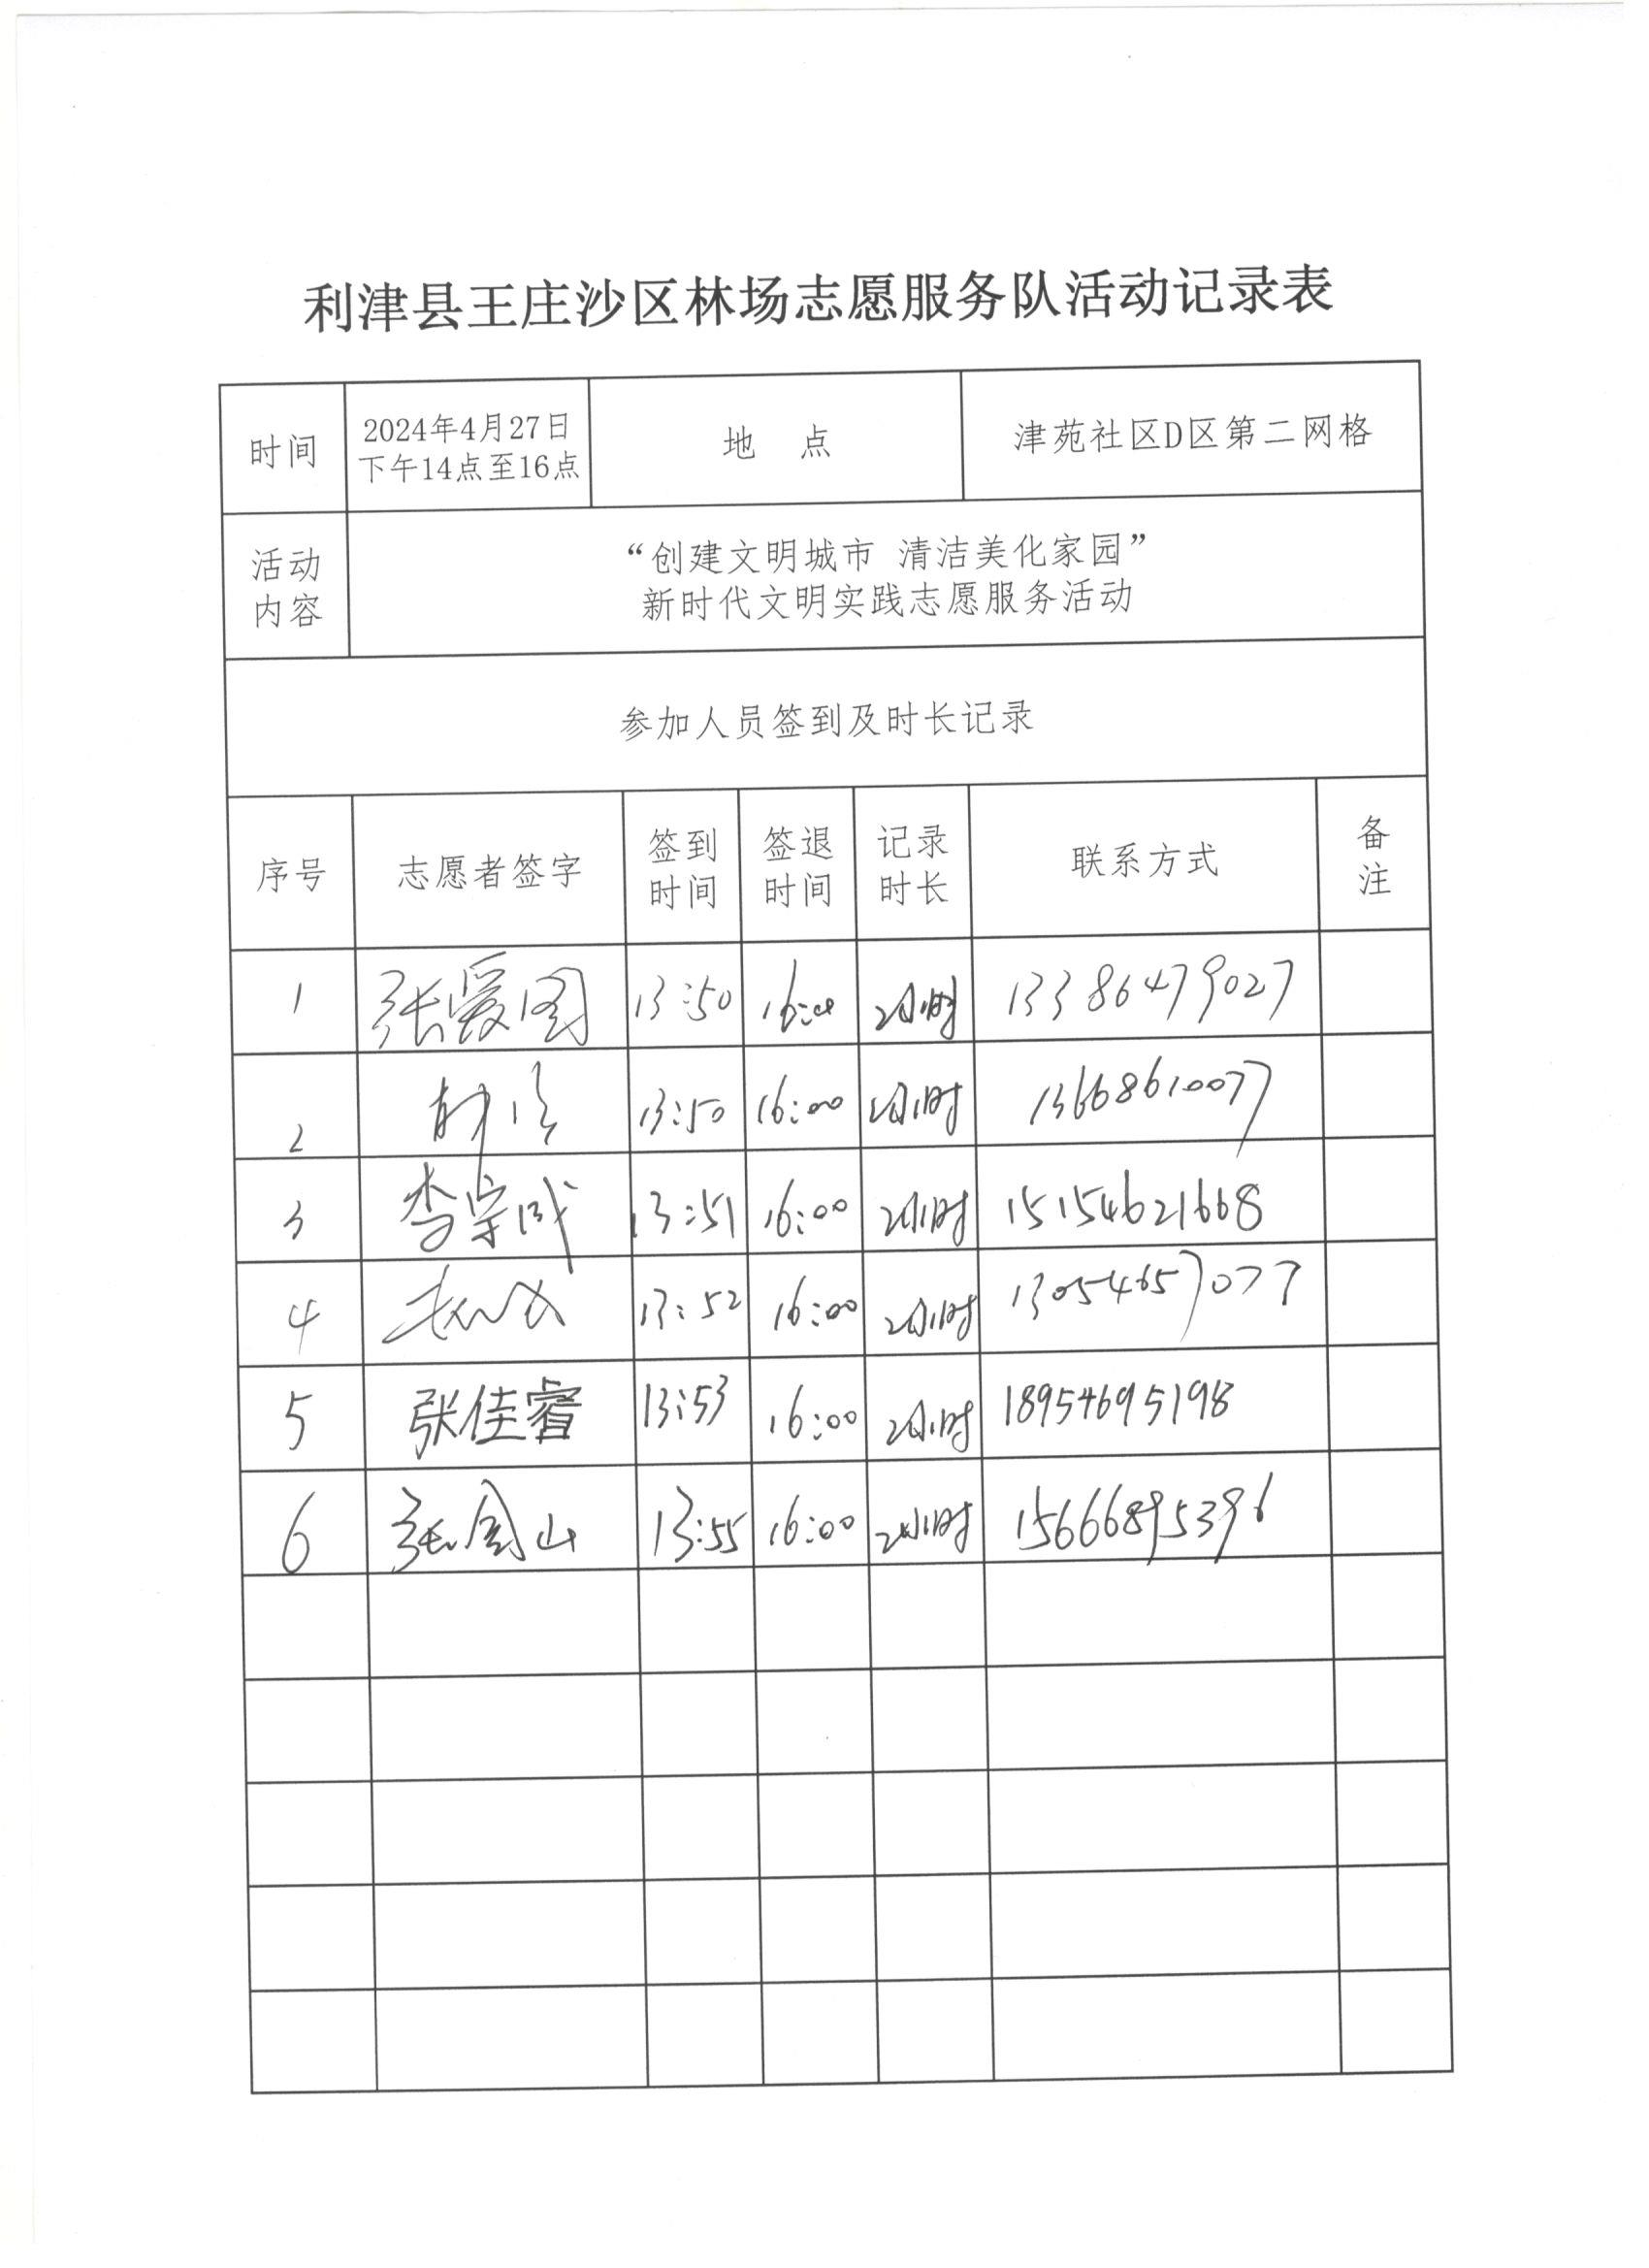 利津县王庄沙区林场志愿服务队活动记录表
时间 2024年4月27日 下午14点至16点 地 点 津苑社区D区第二网格
活动内容 “创建文明城市 清洁美化家园”
新时代文明实践志愿服务活动
参加人员签到及时长记录
序号 志愿者签字 签到时间 签退时间 记录时长 联系方式 备注
1 张爱图 13:50 16:00 2小时 13386479027
2 13:50 16:00 2小时 13668610077
3 李宗成 13:51 16:00 2小时 15154621668
4 13:52 16:00 2小时 13054657077
5 张佳睿 13:53 16:00 2小时 18954695198
6 张金山 13:55 16:00 2小时 15666895396